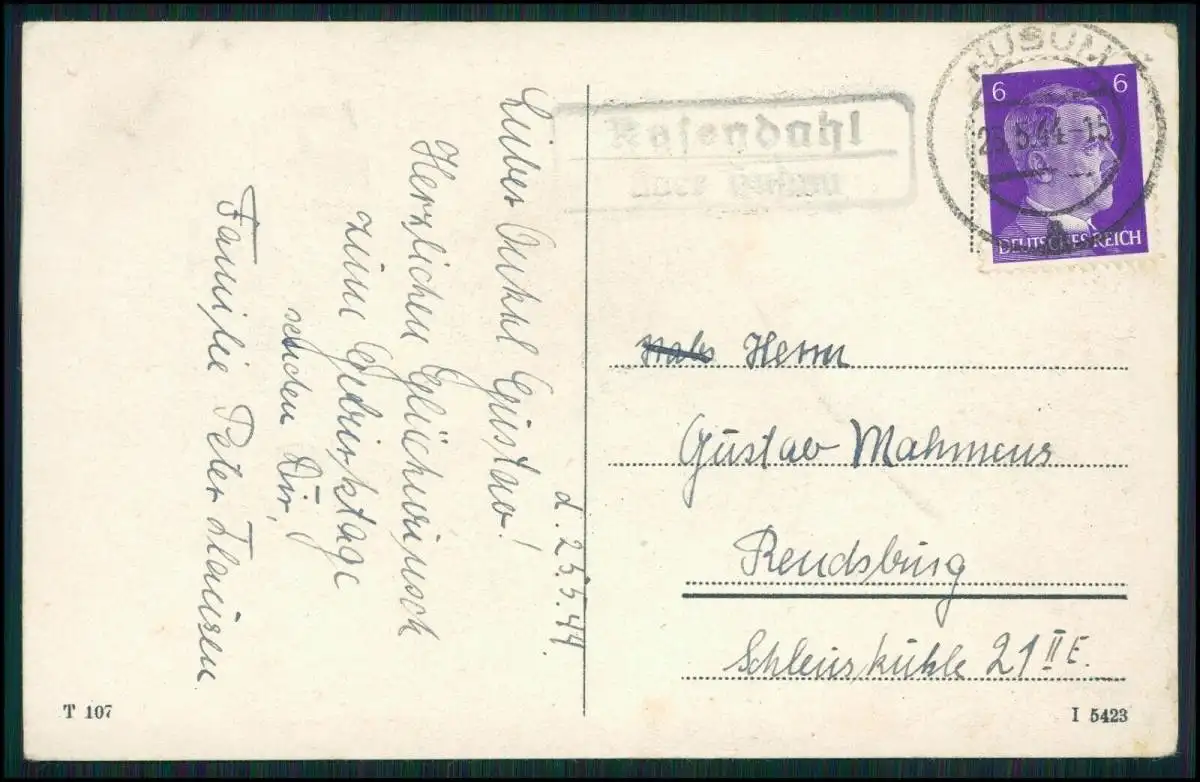 d. 25.5.44.
Lieber Onkel Gustav!
Herzlichen Glückwunsch
zum Geburtstage
senden Dir,
Familie Peter Clausen
Rasendahl
über Husum
HUSUM
25.5.44-15
6 6
DEUTSCHES REICH
Herrn
Gustav Mahmens
Rendsburg
Schleuskuhle 21 II E.
T 107
I 5423